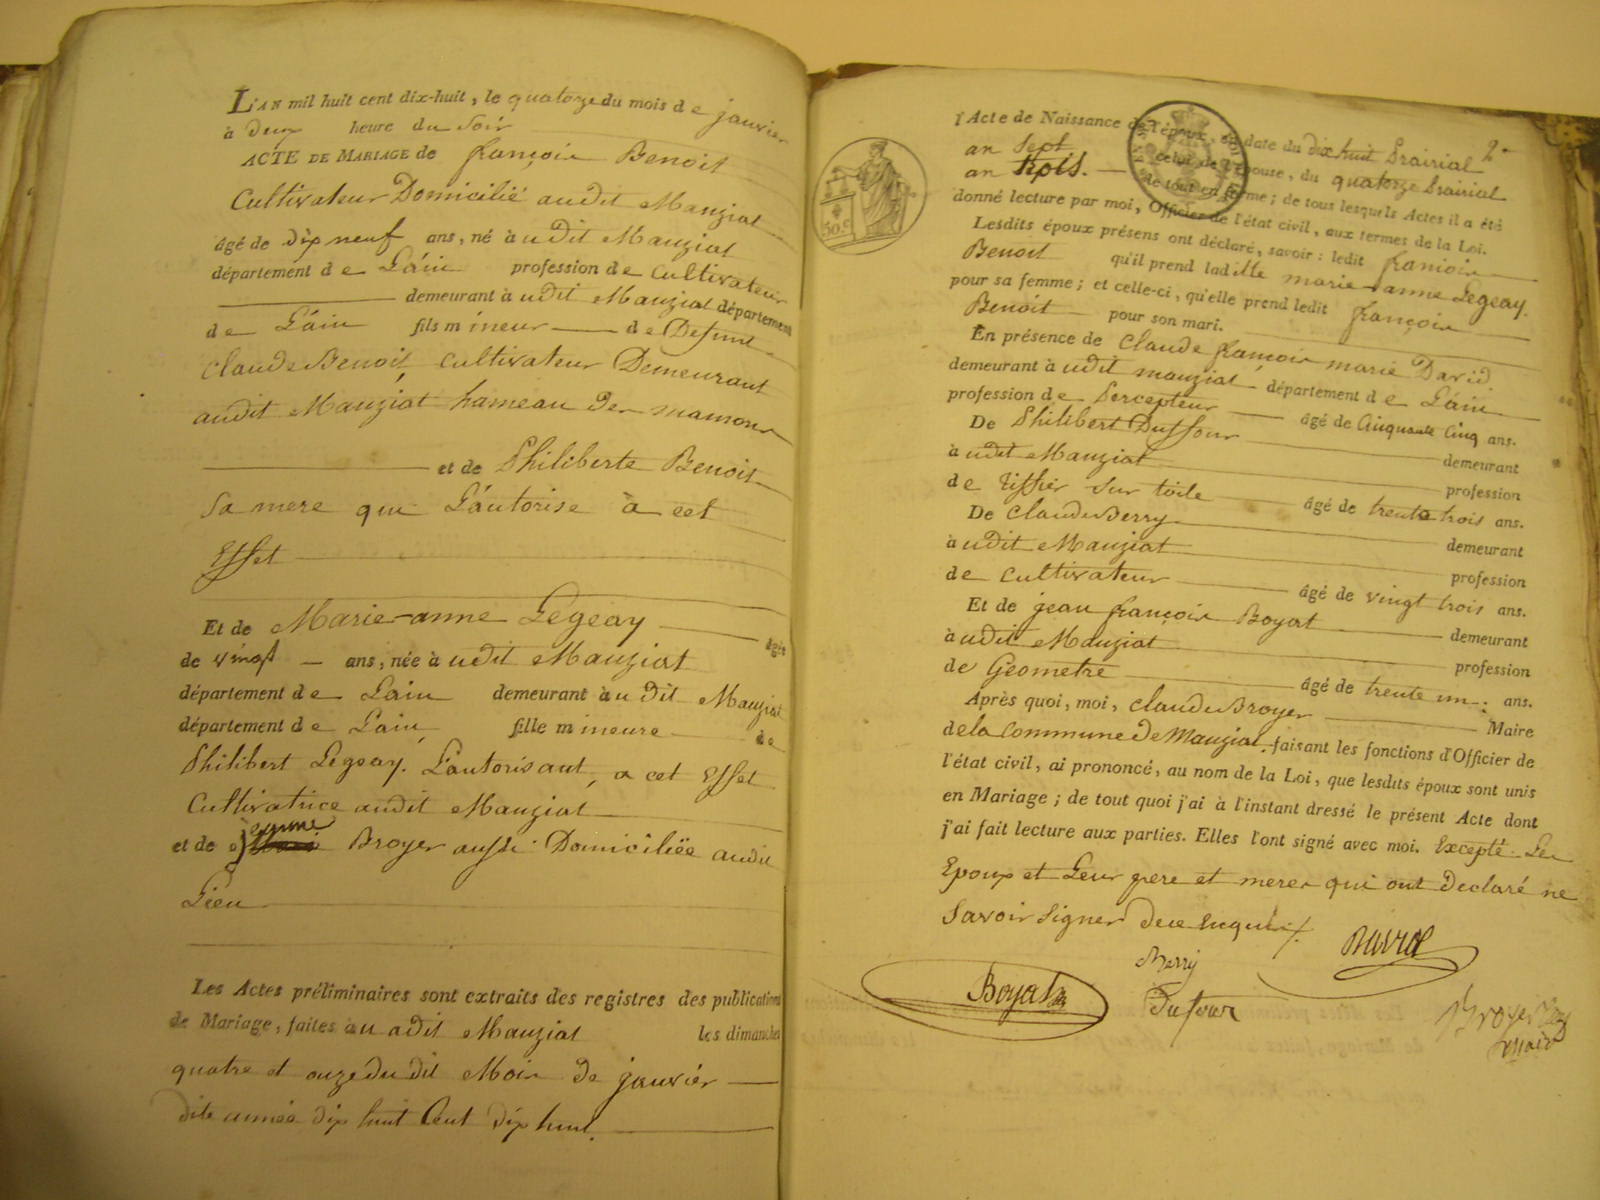 L'AN mil huit cent dix-huit, le quatorze du mois de janvier
à deux heure du Soir
ACTE DE MARIAGE de françois Benoit
Cultivateur Domicilié audit Manziat
âgé de dix neuf ans, né à udit Manziat
département de L'ain profession de Cultivateur
demeurant à udit Manziat département
de L'ain fils mineur de Defunt
Claude Benoit, Cultivateur Demeurant
audit Manziat hameau des mamons
et de Philiberte Benoit
Sa mere qui L'autorise à cet
Effet
Et de Marie-anne Legeay âgée
de vingt ans, née à udit Manziat
département de Lain demeurant àu dit Manziat
département de Lain fille mineure de
Philibert Legeay. L'autorisant, a cet Effet
Cultivatrice audit Manziat
jeanne
et de Broyer aussi Domiciliée audit
Lieu
Les Actes préliminaires sont extraits des registres des publications
de Mariage, faites àu adit Manziat les dimanches
quatre et onze du dit Mois de janvier
dite année dix huit Cent dix huit.
2
l'Acte de Naissance de l'époux, en date du dix huit Prairial
an Sept celui de l'épouse, du quatorze Prairial
an trois. de tout en forme; de tous lesquels Actes il a été
donné lecture par moi, Officier de l'état civil, aux termes de la Loi.
Lesdits époux présens ont déclaré, savoir: ledit françois
Benoit qu'il prend ladite marie-anne Legeay.
pour sa femme; et celle-ci, qu'elle prend ledit françois
Benoit pour son mari.
En présence de Claude françois marie David.
demeurant à udit manziat département de L'ain
profession de Percepteur âgé de Cinquante Cinq ans.
De Philibert Duffour demeurant
à udit Manziat profession
de tissier sur toile âgé de trente trois ans.
De Claude Berry demeurant
à udit Manziat profession
de Cultivateur âgé de vingt trois ans.
Et de jean françois Boyat demeurant
à udit Manziat profession
de Géometre âgé de trente un. ans.
Après quoi, moi, Claude Broyer Maire
de la Commune de Manziat, faisant les fonctions d'Officier de
l'état civil, ai prononcé, au nom de la Loi, que lesdits époux sont unis
en Mariage; de tout quoi j'ai à l'instant dressé le présent Acte dont
j'ai fait lecture aux parties. Elles l'ont signé avec moi. Excepté Les
Epoux et Leur pere et meres qui ont Declaré ne
Savoir Signer de ce Enquis
Boyat
Berry
Dufour
David
Broyer
maire
50. c